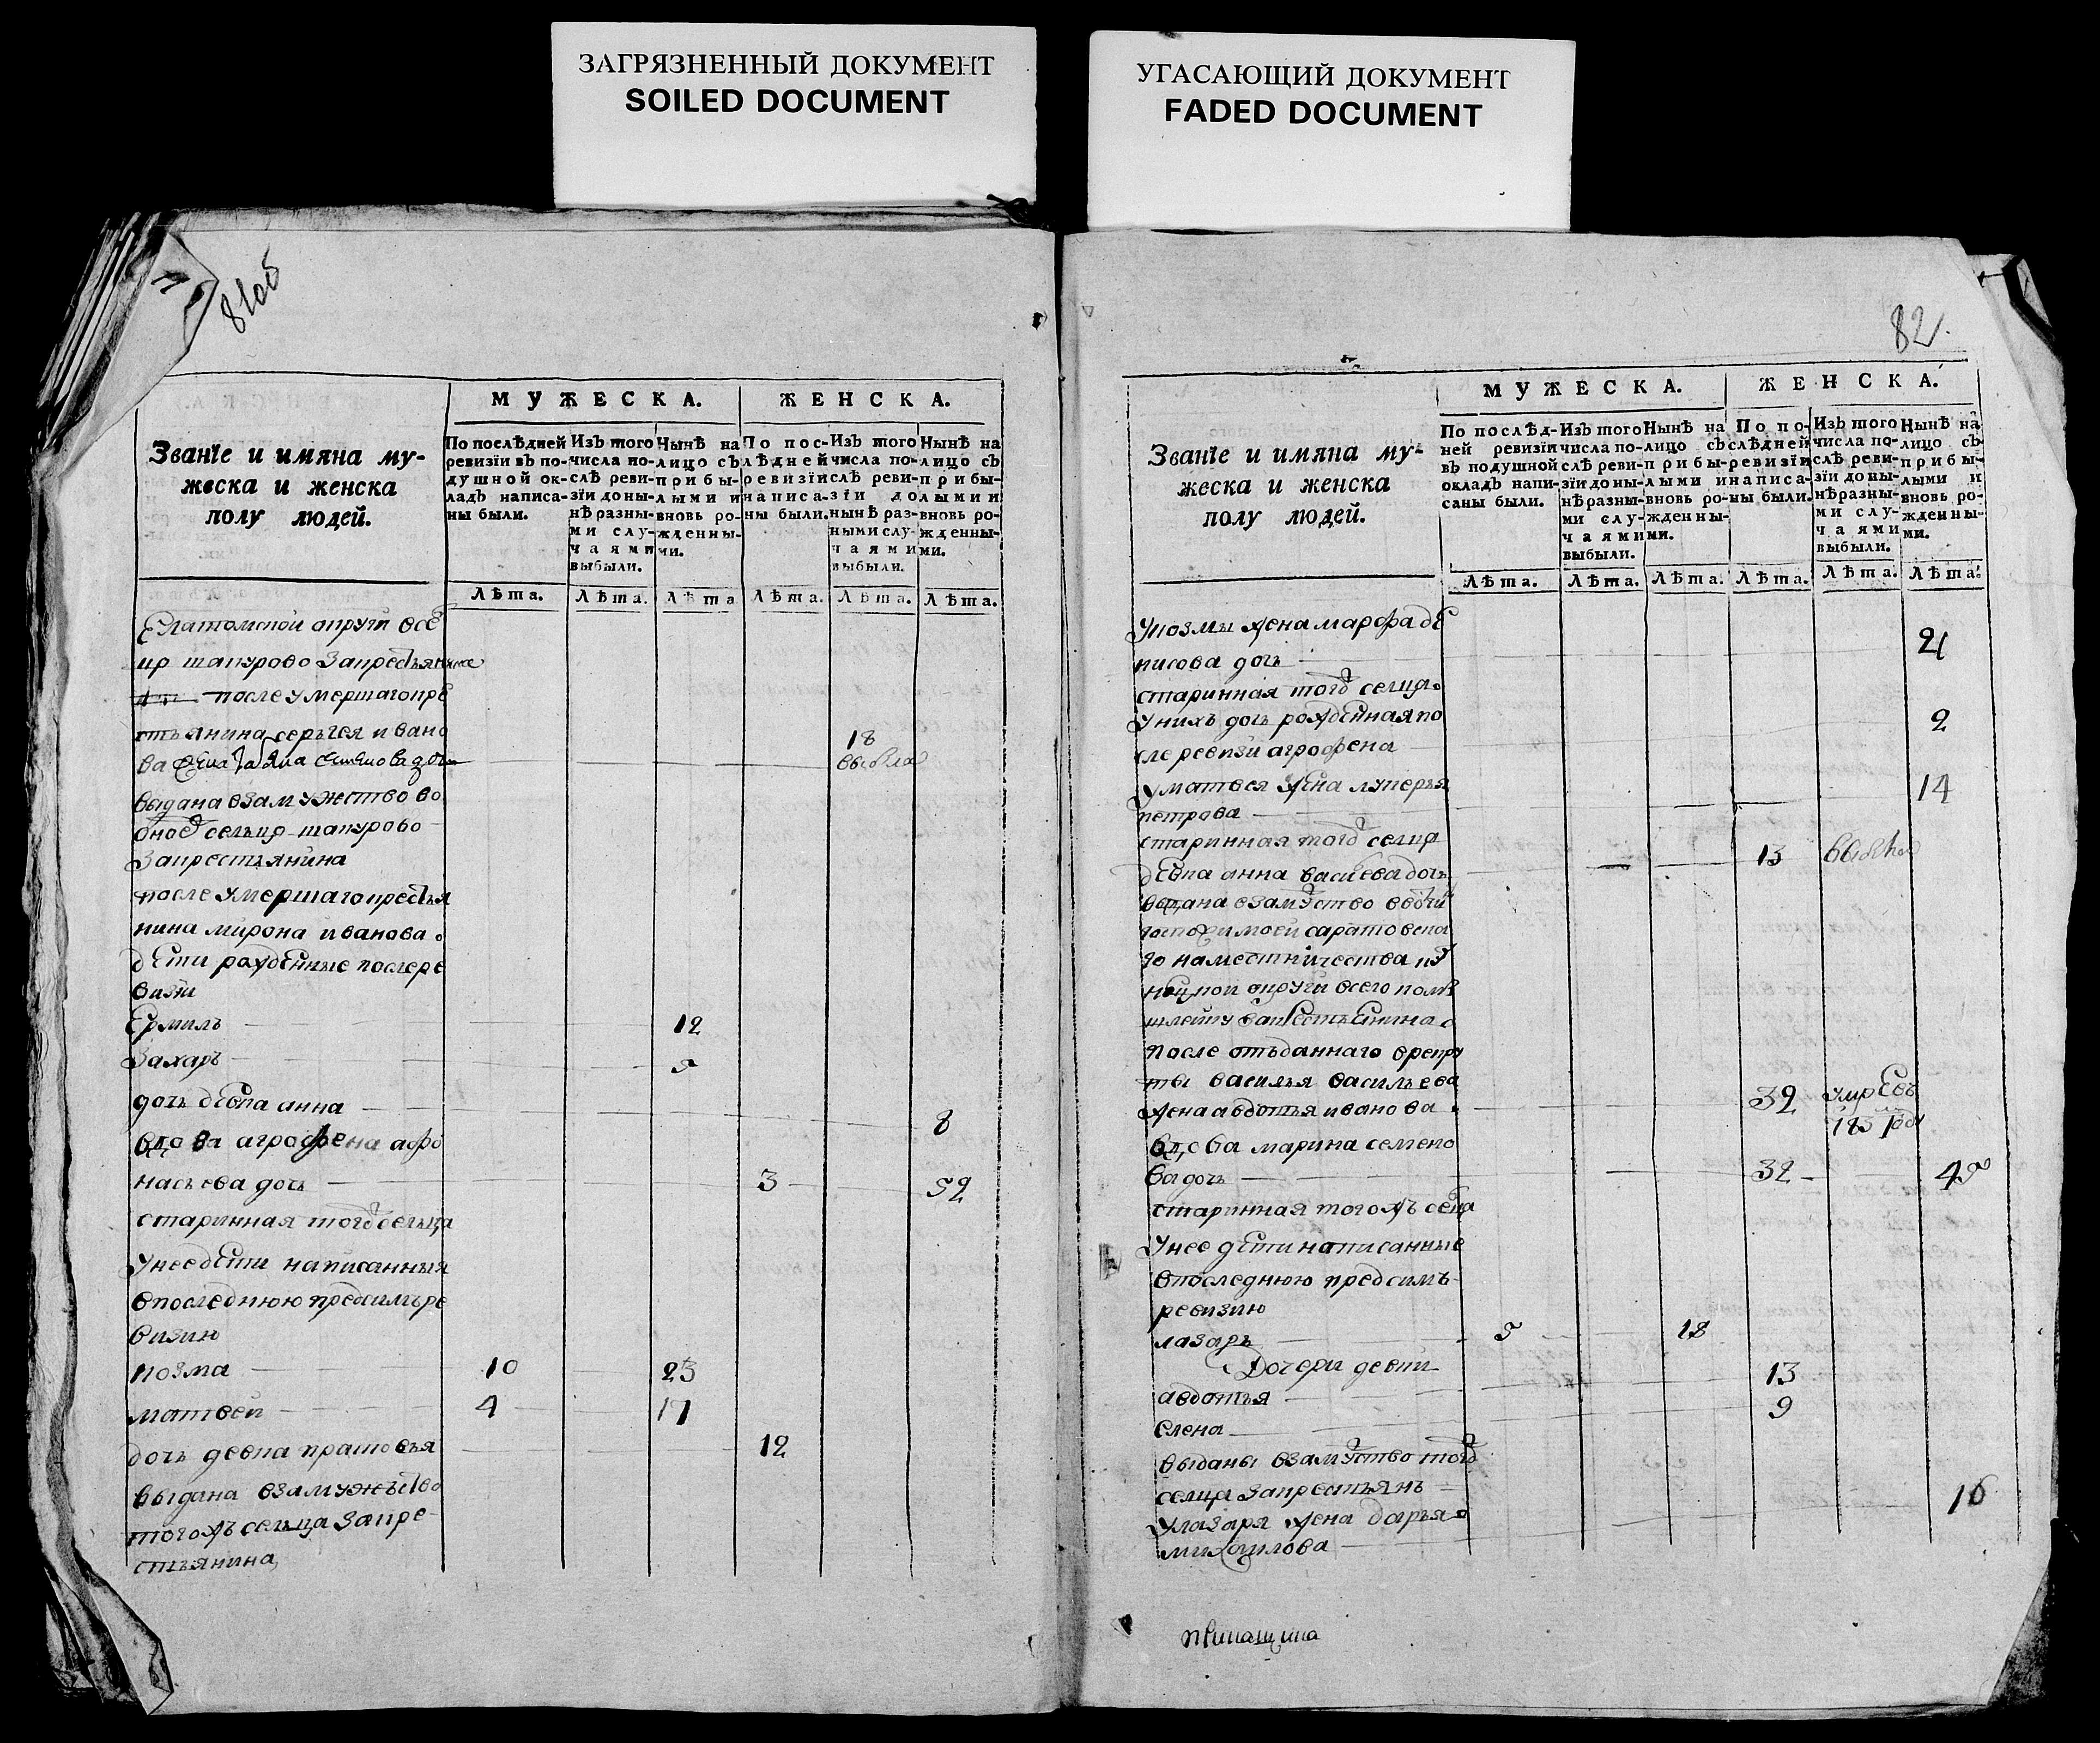 ЗАГРЯЗНЕННЫЙ ДОКУМЕНТ
SOILED DOCUMENT
УГАСАЮЩИЙ ДОКУМЕНТ
FADED DOCUMENT
81об
Званїе и имяна му-
жеска и женска
полу людей.
МУЖЕСКА.
ЖЕНСКА.
По послѣдней ревизїи въ по-душной ок-ладъ написа-ны были.
Изъ того числа по-слѣ реви-зїи до ны-нѣ разны-ми слу-чаями выбыли.
Нынѣ на лицо съ прибы-лыми и вновь ро-жденны-ми.
По пос-лѣдней ревизїи написа-ны были.
Изъ того числа по-слѣ реви-зїи до нынѣ раз-ными слу-чаями выбыли.
Нынѣ на лицо съ прибы-лыми и вновь ро-жденны-ми.
Лѣта. Лѣта. Лѣта Лѣта. Лѣта. Лѣта.
Елатомской округи
после умершаго кре
стьянина серьгея ивано
ва 18
выдана взамужство во
оное сельцо
закрестьянина
после умершаго крестья
нина мирона иванова
дети рожденные после ре
визіи
Ермилъ 12
Захаръ 9
дочь девка анна 8
вдова агрофена афо
насьева дочь 3 52
старинная того сельца
унее дети написанныя
впоследнюю предсимъ ре
визию
козма 10 23
матвей 4 17
дочь девка прасковья 12
выдана взамужъство
тогожъ сельца закре
стьянина
82.
Званїе и имяна му-
жеска и женска
полу людей.
МУЖЕСКА.
ЖЕНСКА.
По послѣд-ней ревизїи въ подушной окладъ напи-саны были.
Изъ того числа по-слѣ реви-зїи до ны-нѣ разны-ми слу-чаями выбыли.
Нынѣ на лицо съ прибы-лыми и вновь ро-жденны-ми.
По по-слѣдней ревизїи написа-ны были.
Изъ того числа по-слѣ реви-зїи до ны-нѣ разны-ми слу-чаями выбыли.
Нынѣ на лицо съ прибы-лыми и вновь ро-жденны-ми.
Лѣта. Лѣта. Лѣта. Лѣта. Лѣта. Лѣта.
Укозмы жена марфа де
нисова дочь 21
старинная того селца
Унихъ дочь рожденная по
сле ревизи агрофена 2
Уматвея жена лукерья
петрова 14
старинная того селца
девка анна дочь 13
выдана
госпожи моей саратовска
го наместничества
округи
после отъданнаго врекру
ты василья васильева
жена авдотья иванова 39
вдова марина семено
ва дочь 32 45
старинная тогожъ селца
Унее дети написанные
впоследнюю предсимъ
ревизию
лазарь 5 18
Дочери девки
авдотья 13
елена 9
выданы взамуство того
селца закрестьянъ
Улазаря жена дарья
михаилова 16